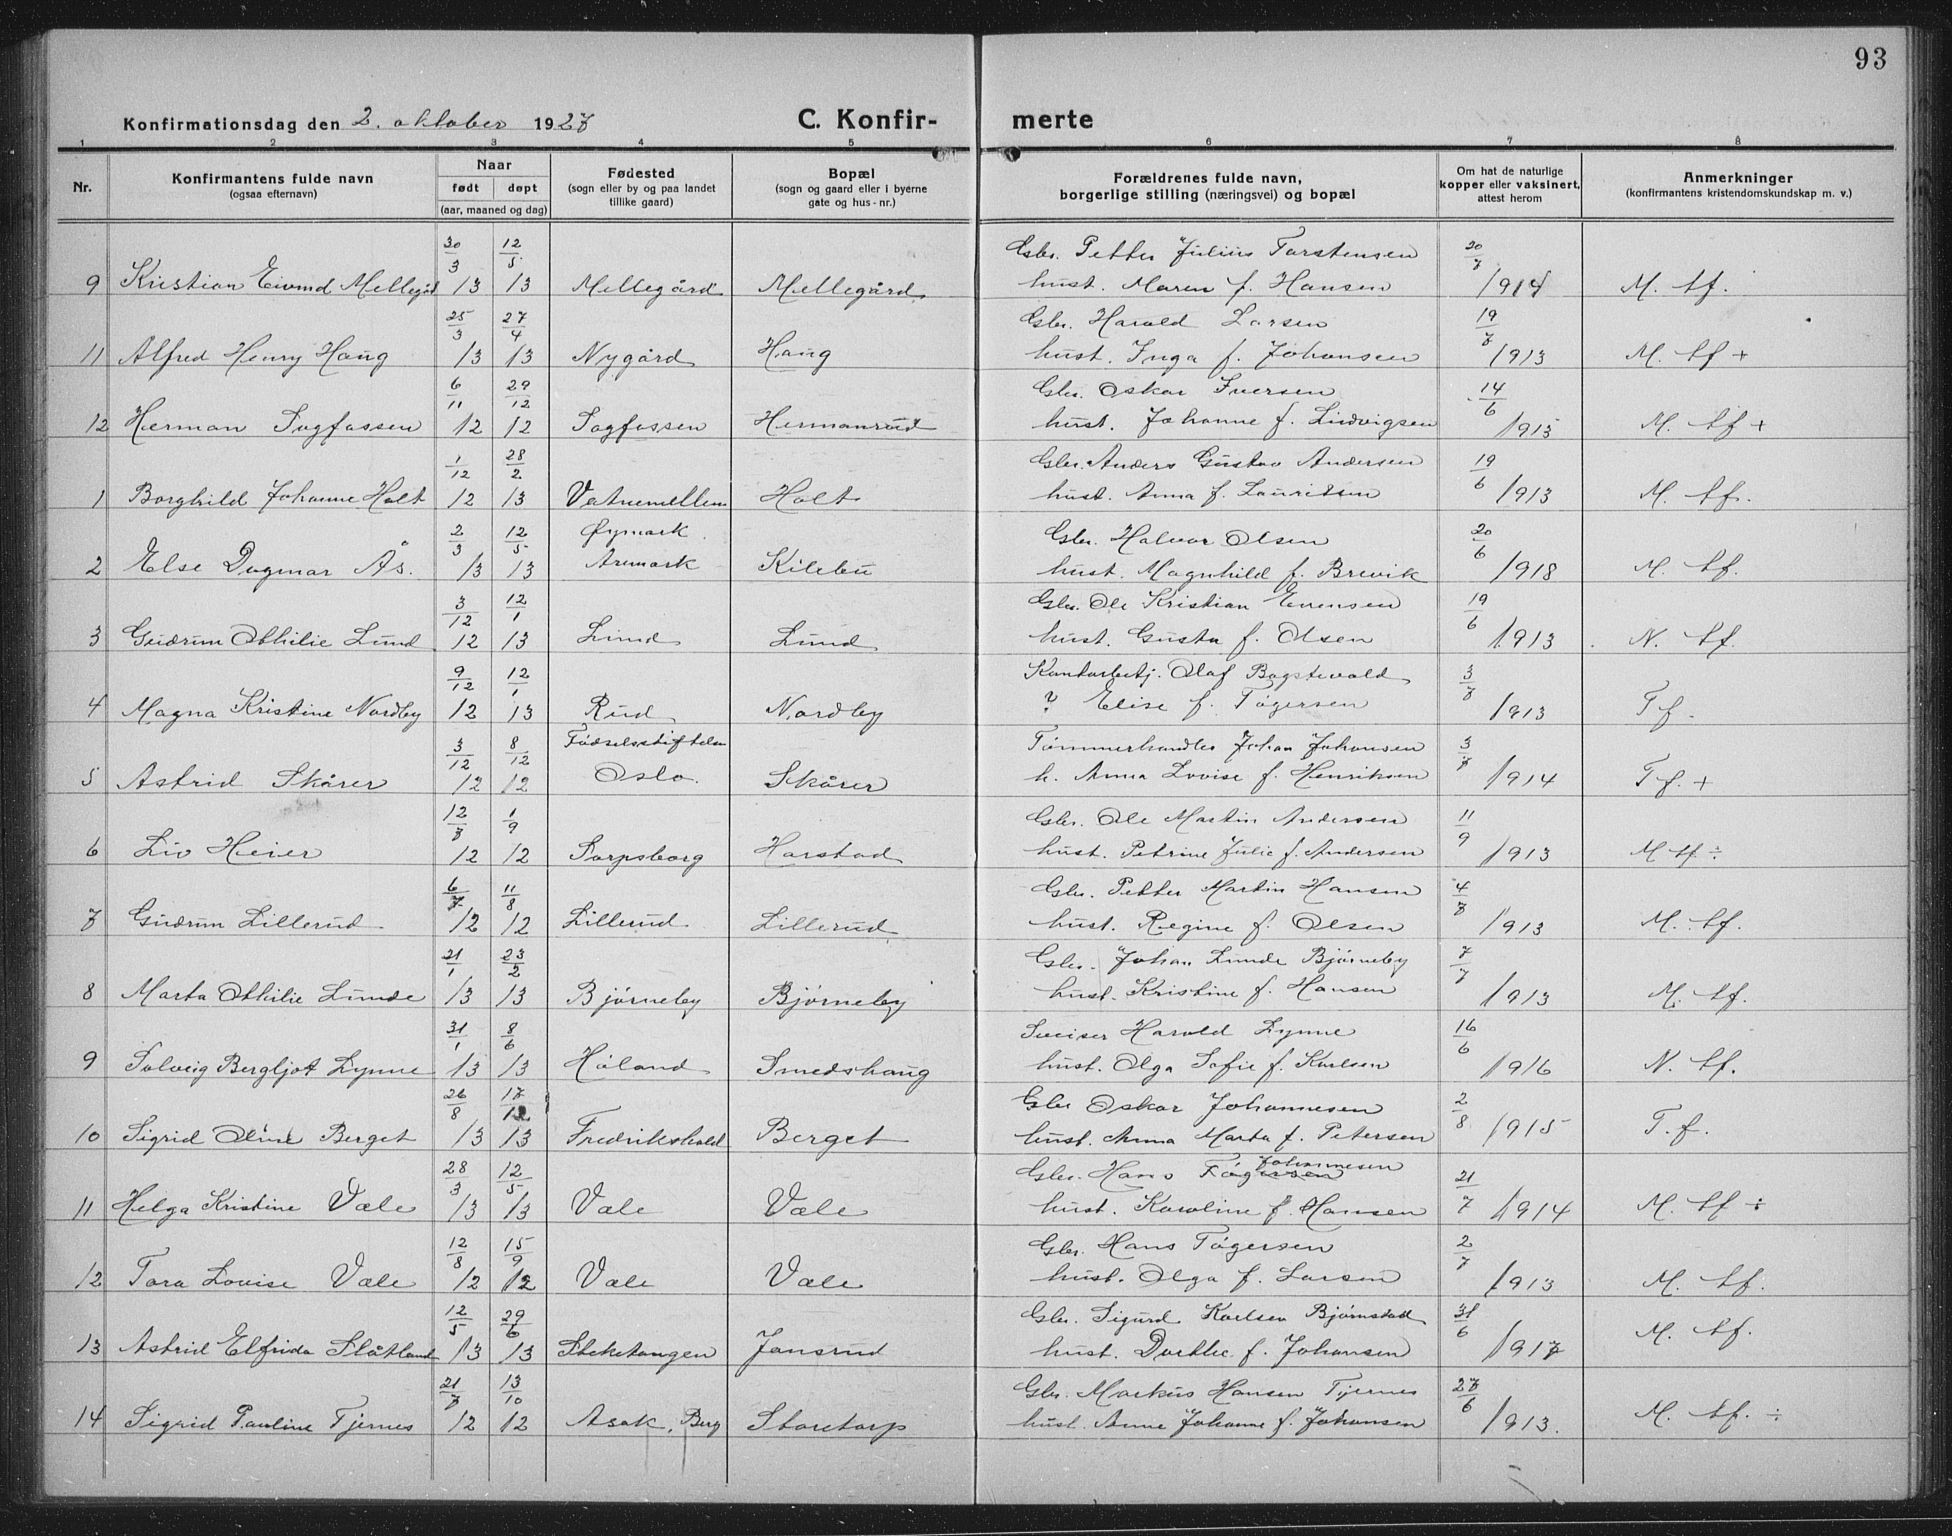 93
Konfirmationsdag den 2. oktober 1927
C. Konfir- merte
1 2 3 4 5 6 7 8
Nr.
Konfirmantens fulde navn
(ogsaa efternavn)
Naar
født døpt
(aar, maaned og dag)
Fødested
(sogn eller by og paa landet
tillike gaard)
Bopæl
(sogn og gaard eller i byerne
gate og hus-nr.)
Forældrenes fulde navn,
borgerlige stilling (næringsvei) og bopæl
Om hat de naturlige
kopper eller vaksinert,
attest herom
Anmerkninger
(konfirmantens kristendomskundskap m. v.)
30/3 12/5 Gbr. Petter Julius Torstensen 20/7
9 Kristian Eivind Mellegård 13 13 Mellegård Mellegård hust. Maren f. Hansen 1914 M. tf.
25/3 27/4 Gbr. Harald Larsen 19/7
11 Alfred Henry Haug 13 13 Nygård Haug hust. Inga f. Johansen 1913 M. tf +
6/11 29/12 Gbr. Oskar Iversen 14/6
12 Herman Sagfossen 12 12 Sagfossen Hermanrud hust. Johanne f. Ludvigsen 1915 M. tf +
1/12 28/2 Gbr. Anders Gustav Andersen 19/6
1 Borghild Johanne Holt 12 13 Vatnemellem Holt hust. Anna f. Lauridsen 1913 M. tf.
2/3 12/5 Øymark Gbr. Halvor Olsen 20/6
2 Else Dagmar Ås. 13 13 Aremark Kilebu hust. Magnhild f. Brevik 1918 M. tf.
3/12 12/1 Gbr. Ole Kristian Evensen 19/6
3 Gudrun Othilie Lund 12 13 Lund Lund hust. Gusta f. Olsen 1913 N. tf.
9/12 12/1 Kontorbetj. Olaf Bogstevold 3/7
4 Magna Kristine Nordby 12 13 Rud Nordby ? Elise f. Tøgersen 1913 T f.
3/12 8/12 Fødselsstiftelsen Tømmerhandler Johan Johansen 3/7
5 Astrid Skårer 12 12 Oslo. Skårer h. Anna Lovise f. Henriksen 1914 T f. +
12/7 1/9 Gbr. Ole Martin Andersen 11/9
6 Liv Heier 12 12 Sarpsborg Harstad hust. Petrine Julie f. Andersen 1913 M tf ÷
6/7 11/8 Gbr. Petter Martin Hansen 4/7
7 Gudrun Lillerud 12 12 Lillerud Lillerud hust. Regine f. Olsen 1913 M. tf.
21/1 23/2 Gbr. Johan Lunde Bjørneby 7/7
8 Marta Othilie Lunde 13 13 Bjørneby Bjørneby hust. Kristine f. Hansen 1913 M. tf.
31/1 8/6 Sveiser Harald Lynne 16/6
9 Solveig Bergljot Lynne 13 13 Høland Smedshaug hust. Olga Sofie f. Karlsen 1916 N. tf.
26/8 17/12 Gbr Oskar Johannesen 2/8
10 Sigrid Oline Berget 13 13 Fredrikshald Berget hust. Anna Marta f. Petersen 1915 T. f.
28/3 12/5 Gbr. Hans Tøgersen Johannesen 21/7
11 Helga Kristine Væle 13 13 Væle Væle hust. Karoline f. Hansen 1914 M. tf ÷
12/8 15/9 Gbr. Hans Tøgersen 2/7
12 Tora Lovise Væle 12 12 Væle Væle hust. Olga f. Larsen 1913 M. tf.
12/5 29/6 Gbr. Sigurd Karlsen Bjørnstad 31/6
13 Astrid Elfrida Slåtland 13 13 Steketangen Jansrud hust. Dorthe f. Johansen 1917 M. tf.
21/7 13/10 Gbr. Markus Hansen Tjernes 27/6
14 Sigrid Pauline Tjernes 12 12 Asak, Berg Storetorp hust. Anne Johanne f. Johansen 1913. M. tf. ÷